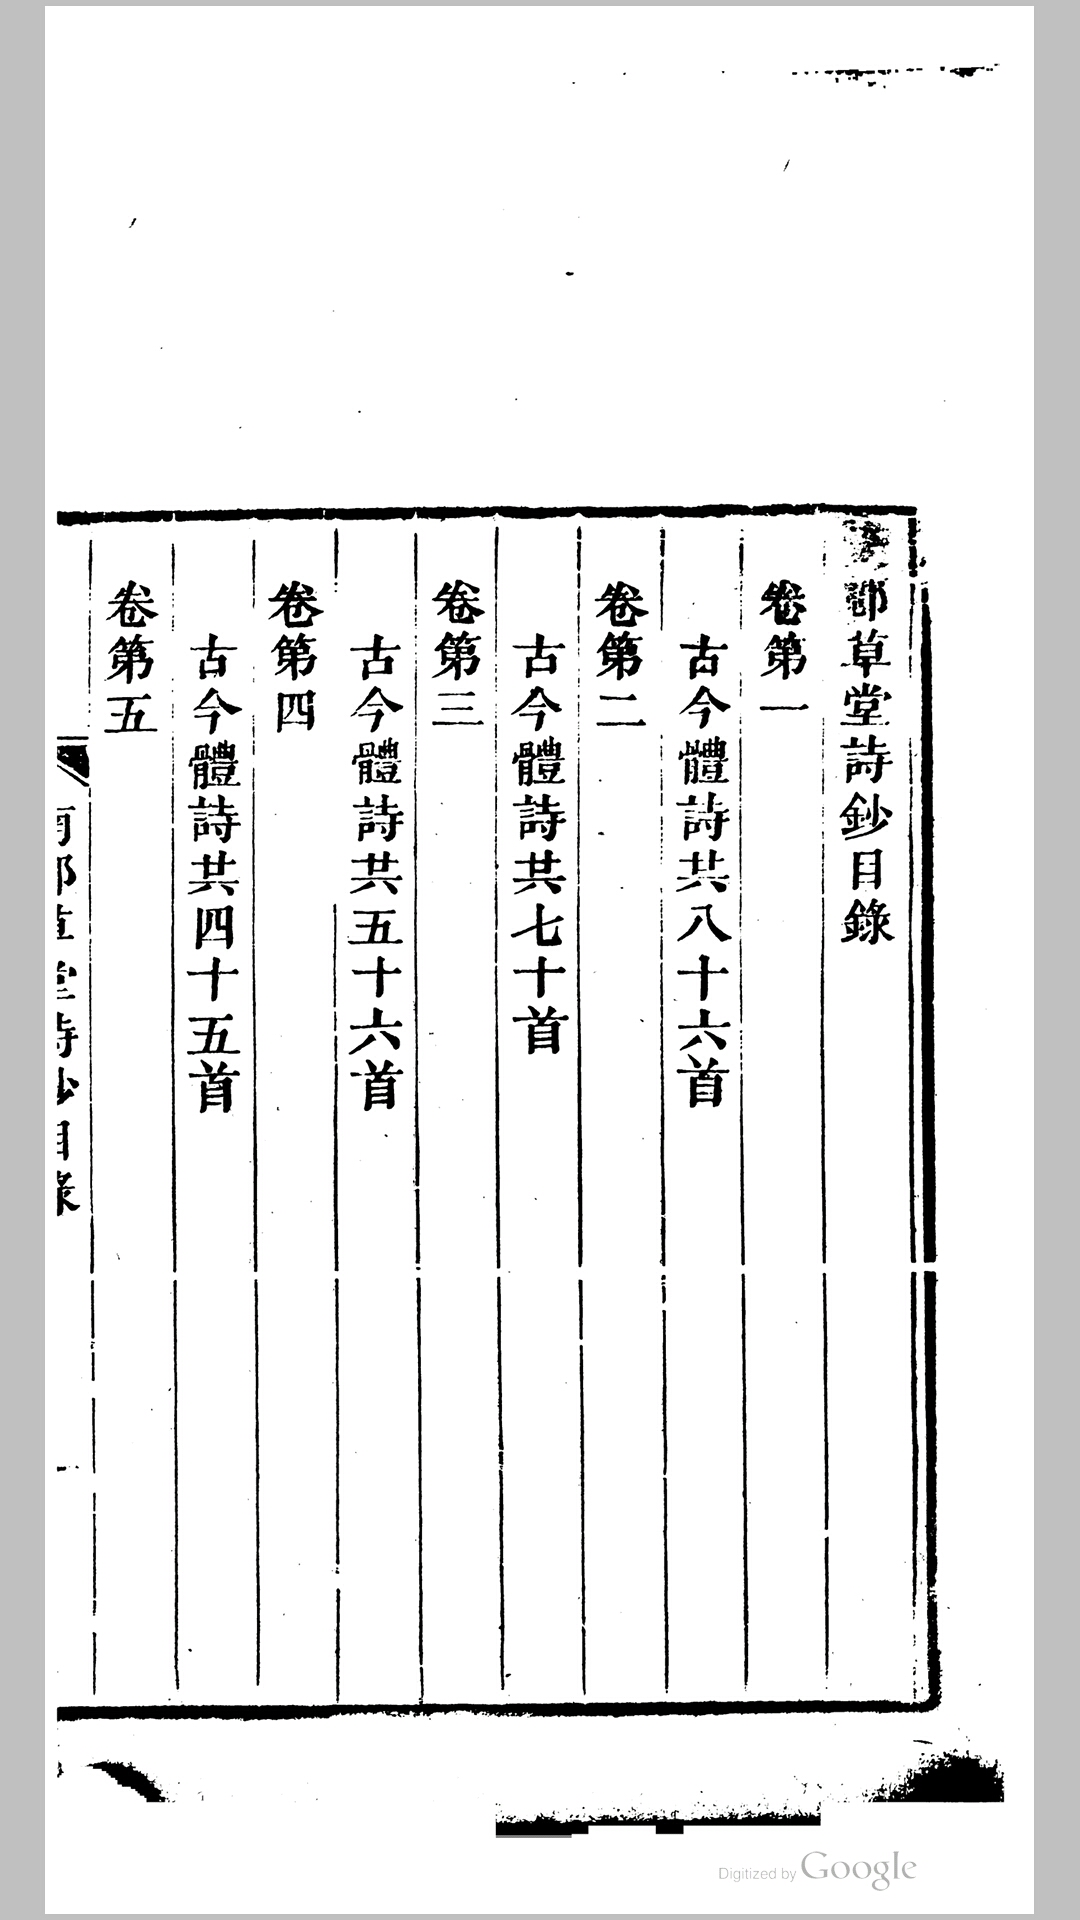 郡草堂詩鈔目錄
卷第一
古今體詩共八十六首
卷第二
古今體詩共七十首
卷第三
古今體詩共五十六首
卷第四
古今體詩共四十五首
卷第五
草堂詩鈔目錄
Digitized by Google